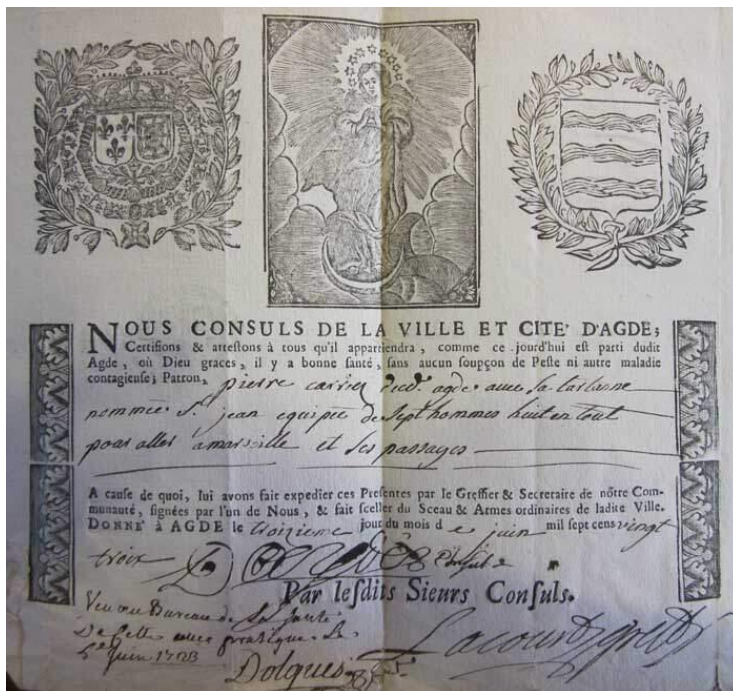 NOUS CONSULS DE LA VILLE ET CITE' D'AGDE;
Certifions & attestons à tous qu'il appartiendra, comme ce jourd'hui est parti dudit
Agde, où Dieu graces, il y a bonne santé, sans aucun soupçon de Peste ni autre maladie
contagieuse; Patron, pierre carrier agde avec sa tartanne
nommée St. jean equipée de sept hommes huit en tout
pour aller a marseille et ses passages
A cause de quoi, lui avons fait expedier ces Presentes par le Greffier & Secretaire de nôtre Com-
munauté, signées par l'un de Nous, & fait sceller du Sceau & Armes ordinaires de ladite Ville.
DONNE' à AGDE le troizieme jour du mois de juin mil sept cens vingt
troix Consul
Par lesdits Sieurs Consuls.
Veu au Bureau de la santé
De Cette avec pratique.
5e juin 1723
Dolques